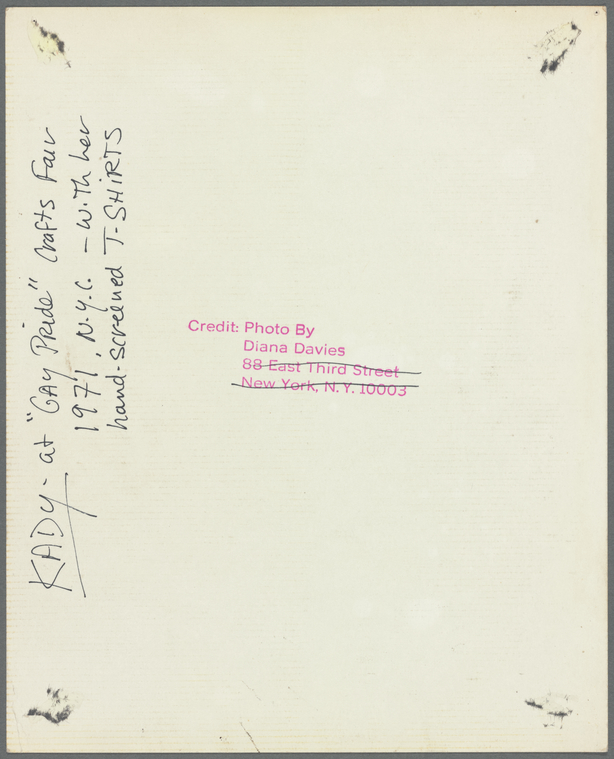 KADY - at "GAY PRIDE" Crafts Fair
1971, N.Y.C. - with her
hand-screened T-SHIRTS
Credit: Photo By
Diana Davies
88 East Third Street
New York, N.Y. 10003